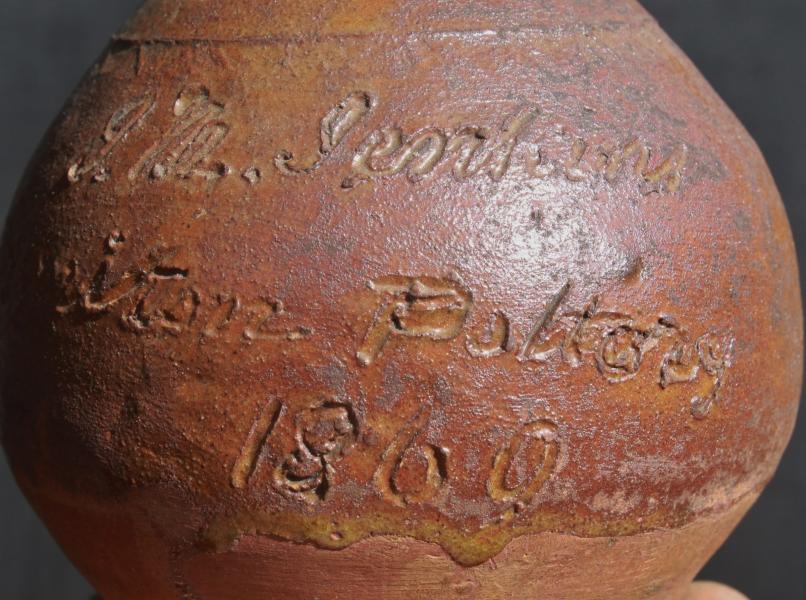 J. M. Jenkins
Pottery
1860